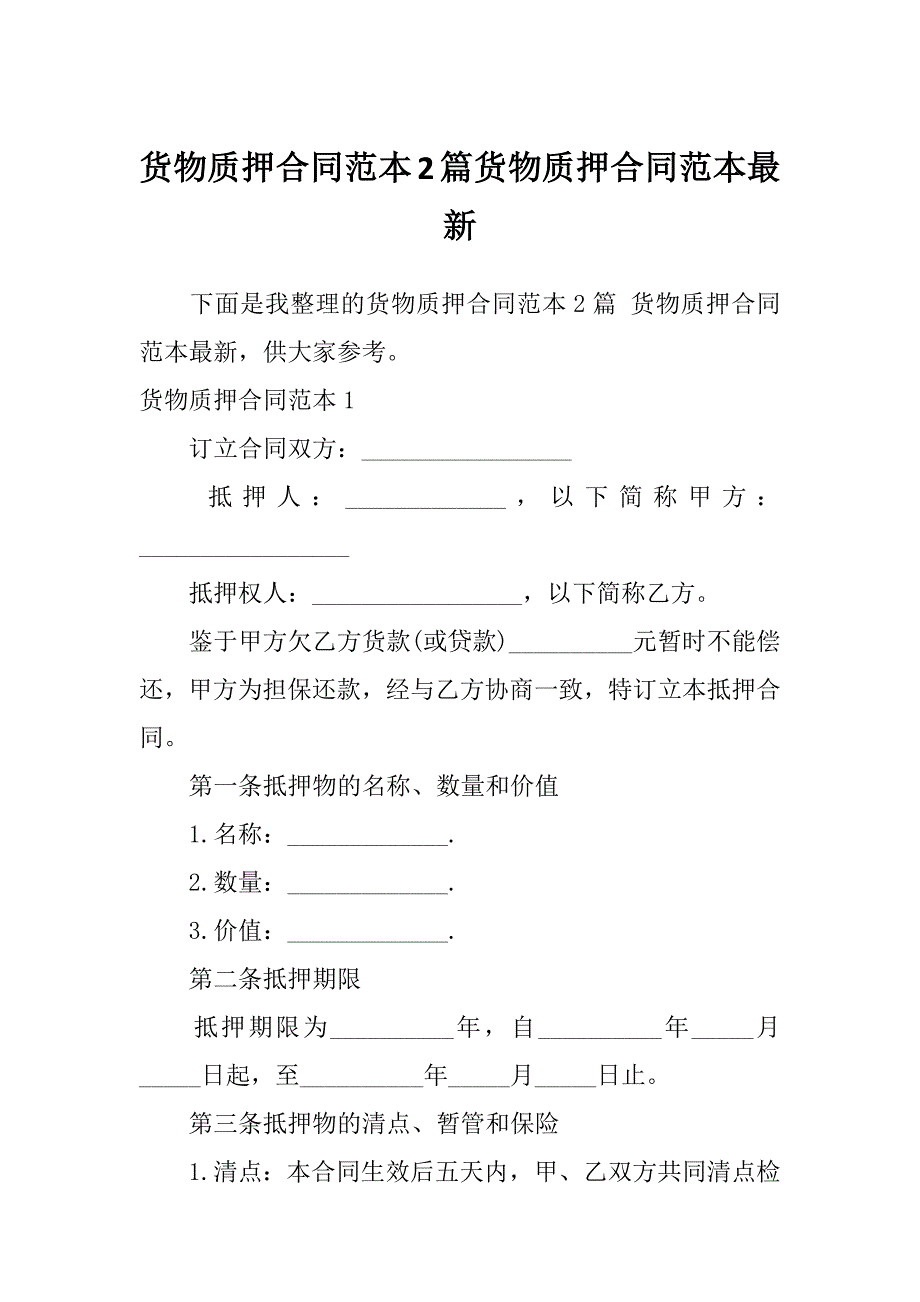 货物质押合同范本2篇货物质押合同范本最
新
下面是我整理的货物质押合同范本2篇 货物质押合同
范本最新，供大家参考。
货物质押合同范本1
订立合同双方：_________________
抵押人：_____________，以下简称甲方：
_________________
抵押权人：_________________，以下简称乙方。
鉴于甲方欠乙方货款(或贷款)__________元暂时不能偿
还，甲方为担保还款，经与乙方协商一致，特订立本抵押合
同。
第一条抵押物的名称、数量和价值
1.名称：_____________.
2.数量：_____________.
3.价值：_____________.
第二条抵押期限
抵押期限为__________年，自__________年_____月
_____日起，至__________年_____月_____日止。
第三条抵押物的清点、暂管和保险
1.清点：本合同生效后五天内，甲、乙双方共同清点检